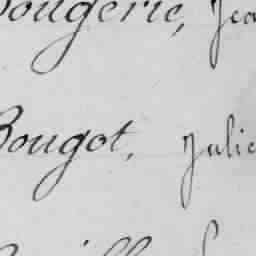 Bougerie, Jea
Bougot, Julie